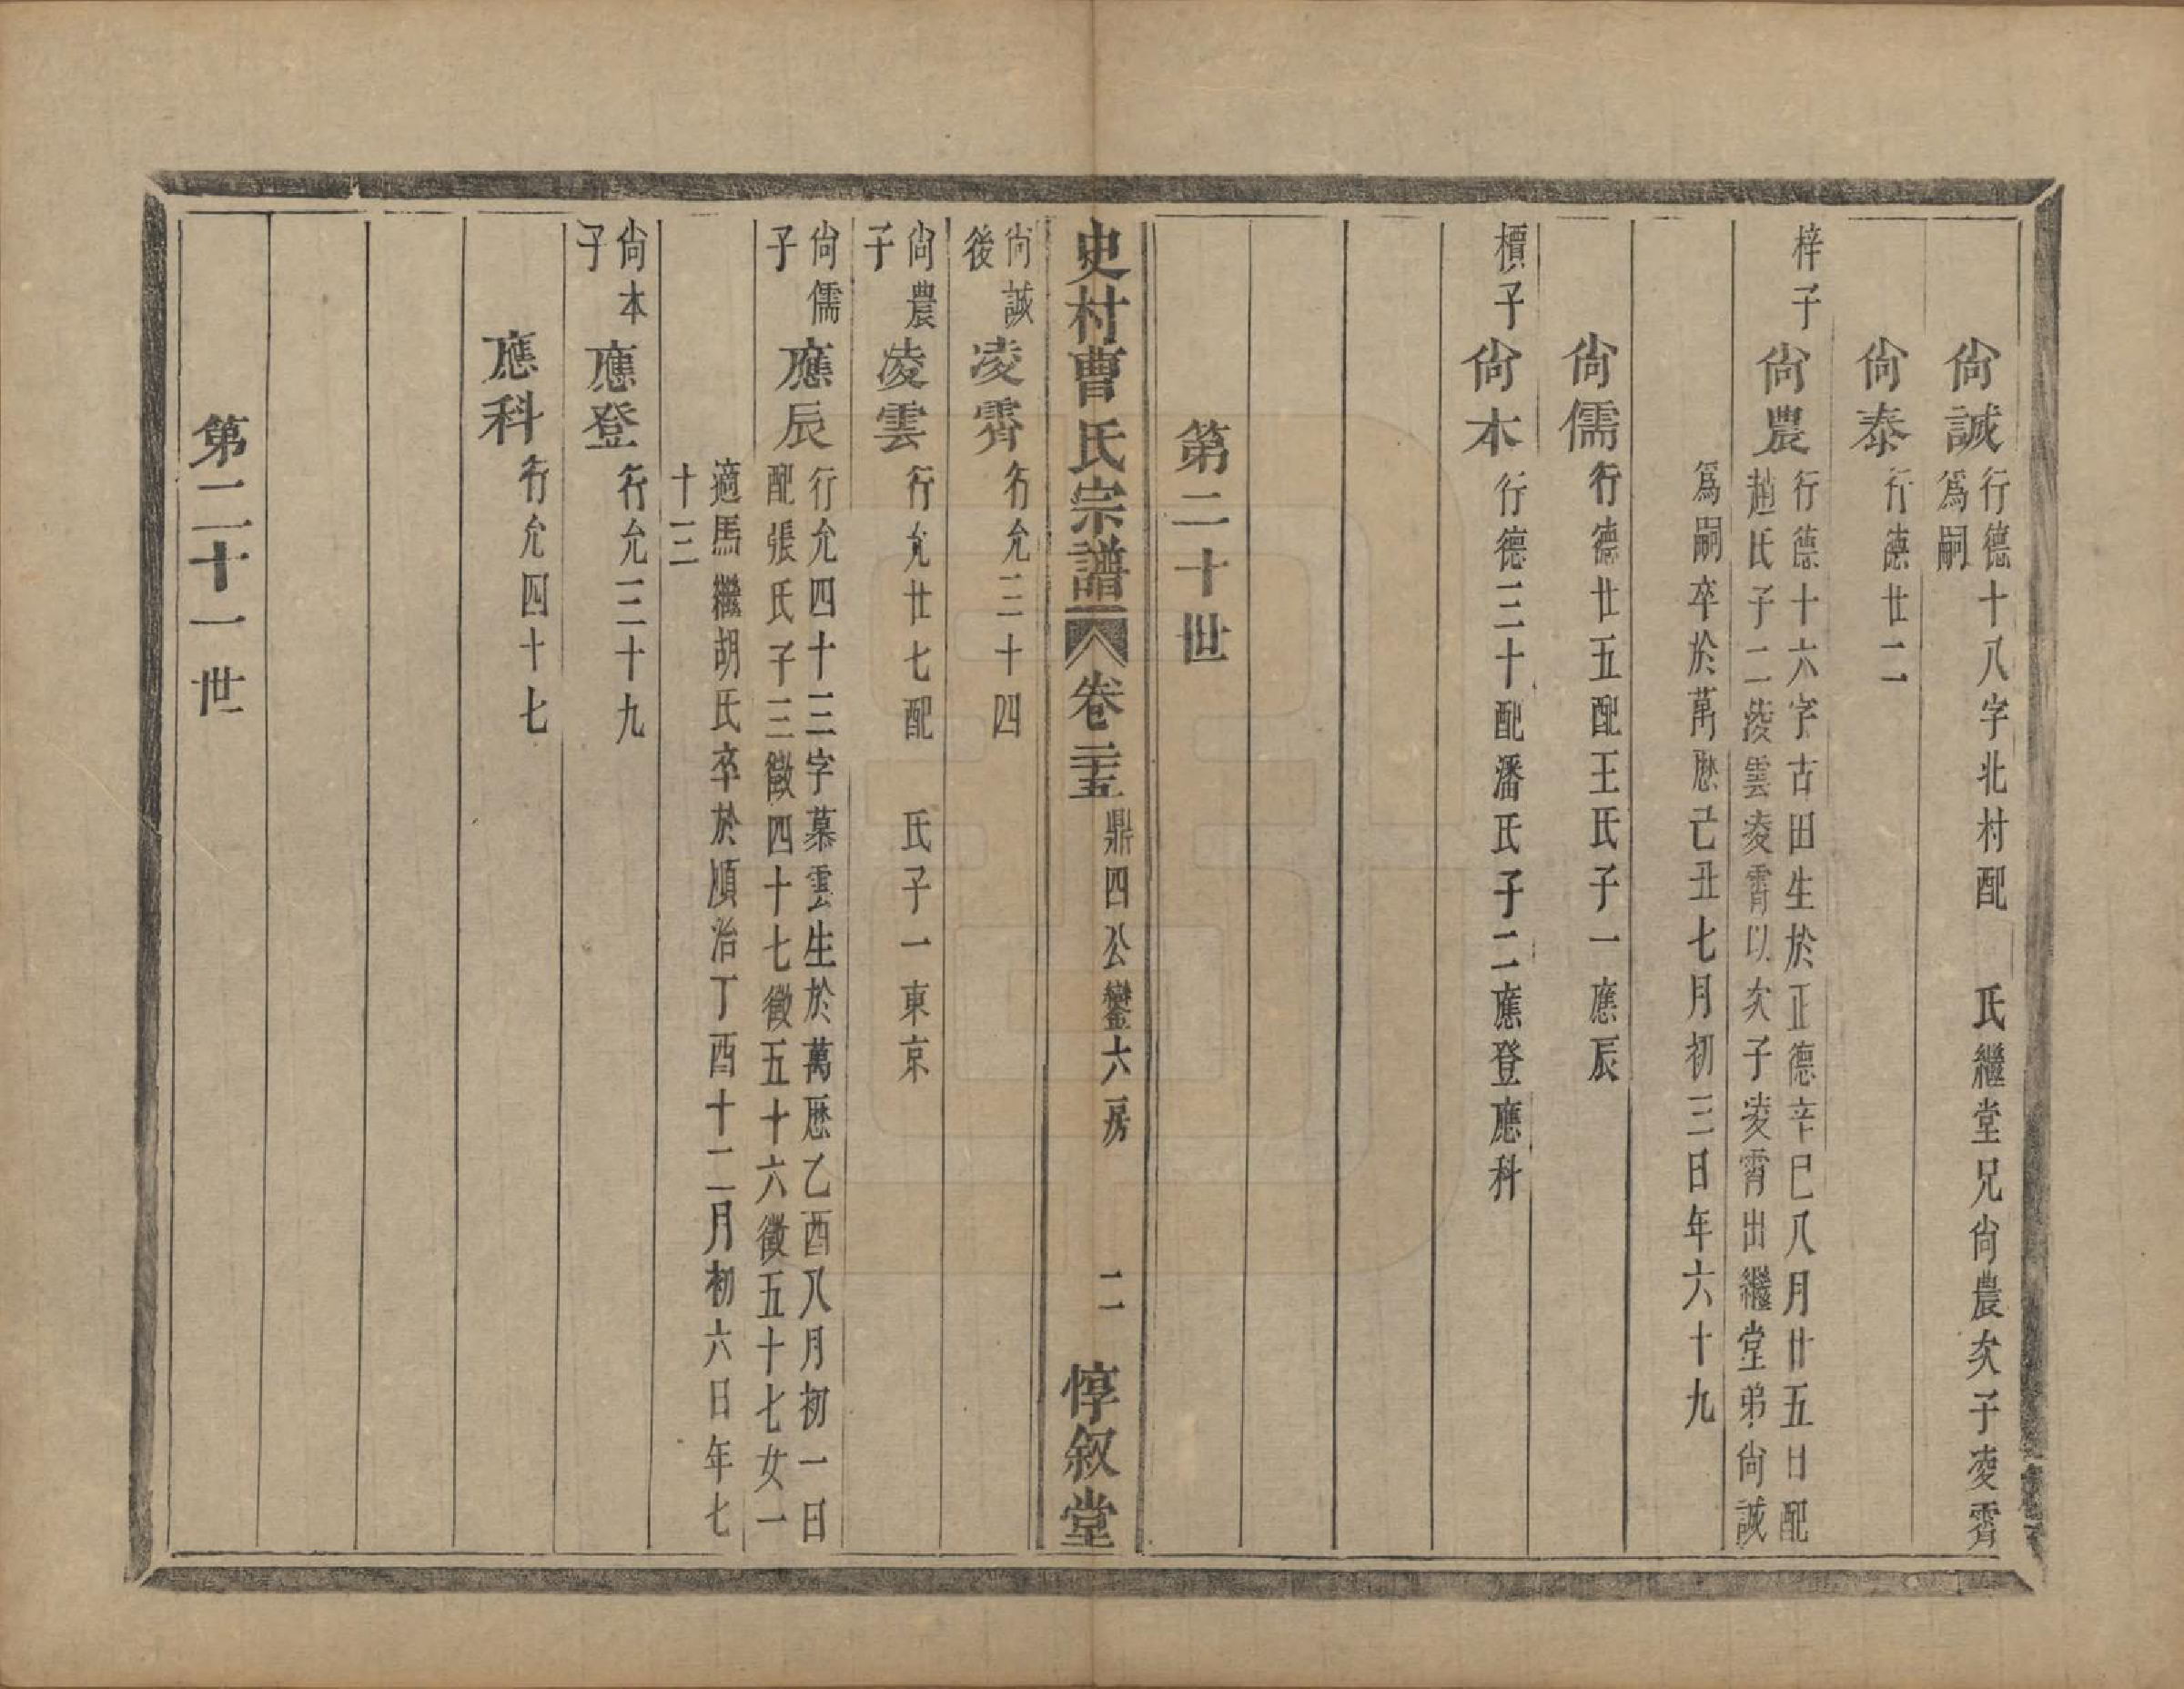 尙誠
行德十八字北村配　氏繼堂兄尙農次子凌霄
爲嗣
尙泰
行德廿二
梓子
尙農
行德十六字古田生於正德辛巳八月廿五日配
趙氏子二凌雲凌霄以次子凌霄出繼堂弟尙誠
爲嗣卒於萬歷己丑七月初三日年六十九
尙儒
行德廿五配王氏子一應辰
檟子
尙木
行德三十配潘氏子二應登應科
第二十世
史村曹氏宗譜
卷二十五
鼎四公鑾六房
二
惇叙堂
尙誠
後
凌霄
行允三十四
尙農
子
凌雲
行允廿七配　氏子一東京
尙儒
子
應辰
行允四十三字慕雲生於萬歷乙酉八月初一日
配張氏子三徵四十七徵五十六徵五十七女一
適馬繼胡氏卒於順治丁酉十二月初六日年七
十三
尙本
子
應登
行允三十九
應科
行允四十七
第二十一世